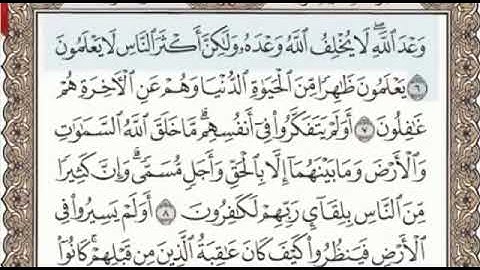 وَعْدَ ٱللَّهِۖ لَا يُخْلِفُ ٱللَّهُ وَعْدَهُۥ وَلَٰكِنَّ أَكْثَرَ ٱلنَّاسِ لَا يَعْلَمُونَ
٦ يَعْلَمُونَ ظَٰهِرًا مِّنَ ٱلْحَيَوٰةِ ٱلدُّنْيَا وَهُمْ عَنِ ٱلْءَاخِرَةِ هُمْ
غَٰفِلُونَ ٧ أَوَلَمْ يَتَفَكَّرُوا۟ فِىٓ أَنفُسِهِمۗ مَّا خَلَقَ ٱللَّهُ ٱلسَّمَٰوَٰتِ
وَٱلْأَرْضَ وَمَا بَيْنَهُمَآ إِلَّا بِٱلْحَقِّ وَأَجَلٍ مُّسَمًّىۗ وَإِنَّ كَثِيرًا
مِّنَ ٱلنَّاسِ بِلِقَآئِ رَبِّهِمْ لَكَٰفِرُونَ ٨ أَوَلَمْ يَسِيرُوا۟ فِى
ٱلْأَرْضِ فَيَنظُرُوا۟ كَيْفَ كَانَ عَٰقِبَةُ ٱلَّذِينَ مِن قَبْلِهِمْۚ كَانُوٓا۟